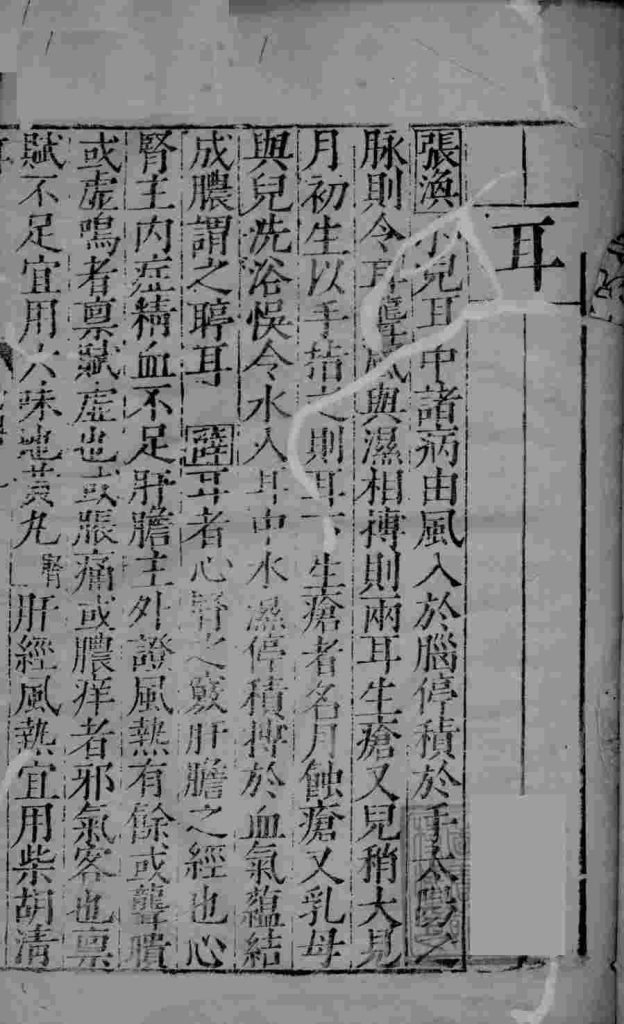 耳
張渙小兒耳中諸病由風入於腦停積於手太陽之
脉則令耳聾風與濕相搏則兩耳生瘡又兒稍大見
月初生以手指之則耳下生瘡者名月蝕瘡又乳母
與兒洗浴悞令水入耳中水濕停積搏於血氣蘊結
成膿謂之聤耳 薛耳者心腎之竅肝膽之經也心
腎主內症精血不足肝膽主外證風熱有餘或聾聵
或虛鳴者禀賦虛也或脹痛或膿痒者邪氣客也禀
賦不足宜用六味地黃丸腎肝經風熱宜用柴胡清